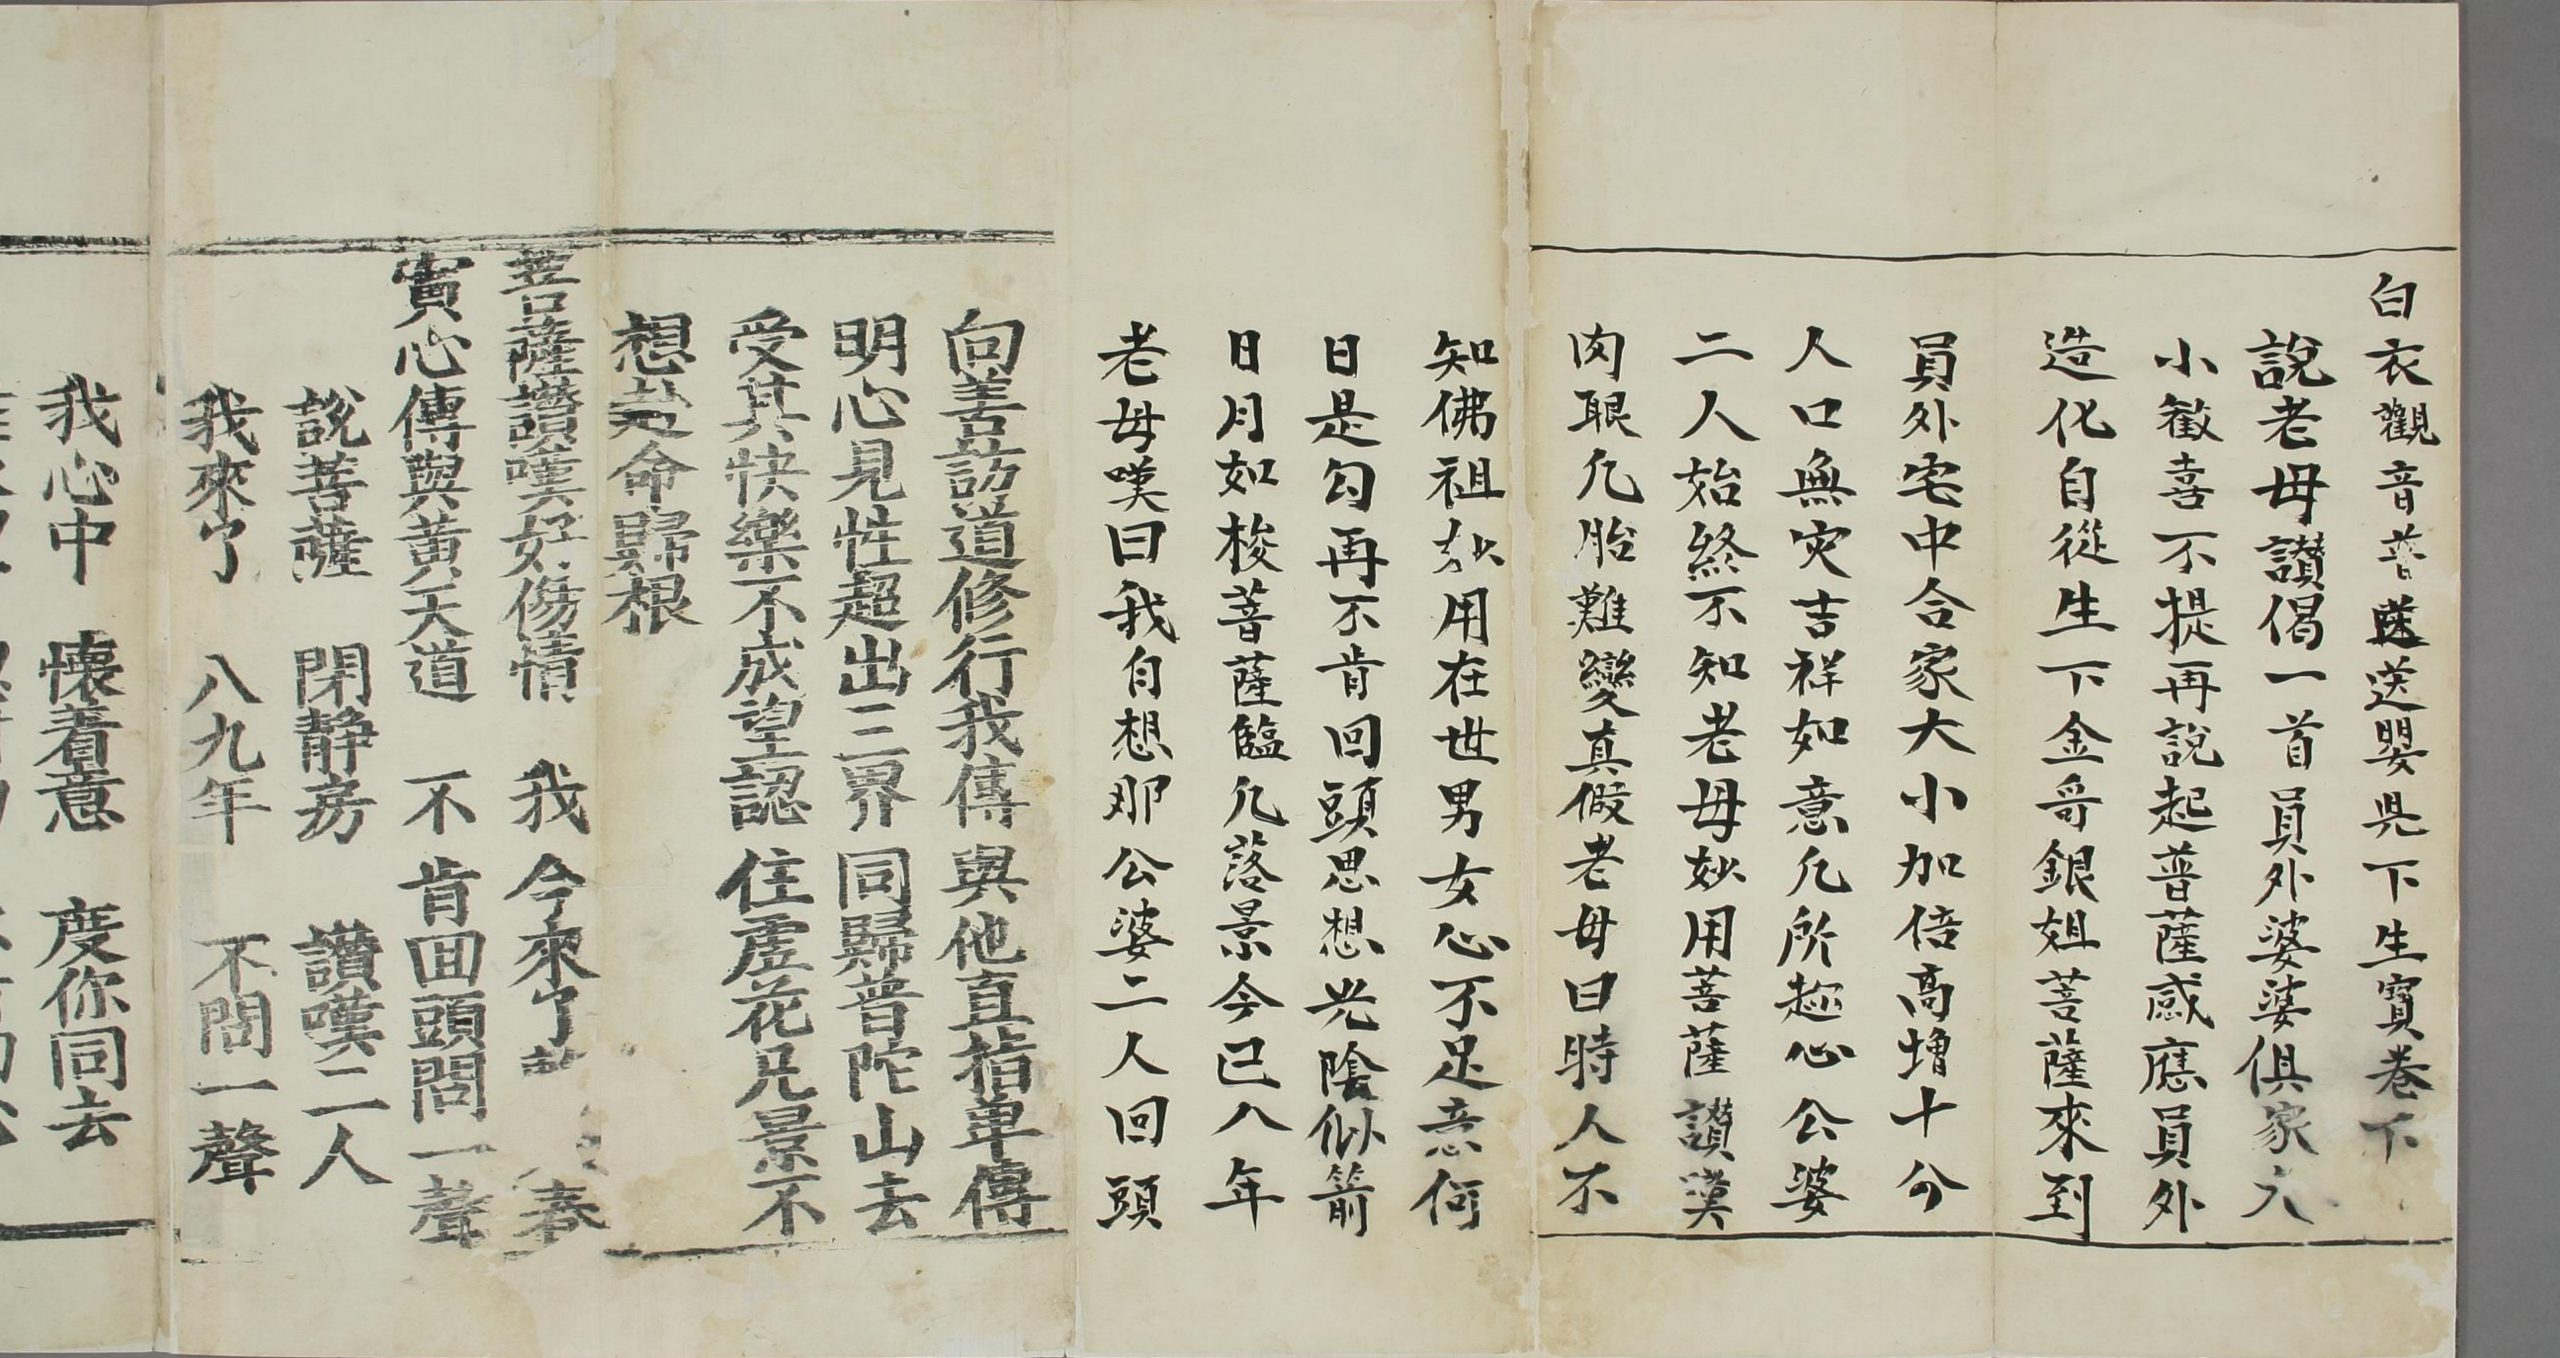 白衣觀音普薩送嬰児下生寳卷下
說老母讃偈一首員外婆婆俱家大
小歡喜不提再說起普薩感應員外
造化自從生下金哥銀姐菩薩來到
員外宅中合家大小加倍高增十分
人口無灾吉祥如意凢所趂心公婆
二人始終不知老母妙用菩薩讃嘆
肉眼凢胎難變真假老母曰時人不
知佛祖玅用在世男女心不足意何
日是勾再不肯回頭思想光陰似箭
日月如梭菩薩臨凢落景今已八年
老母嘆曰我自想那公婆二人回頭
向善訪道修行我傳與他直指單傳
明心見性超出三界同歸普陀山去
受其快樂不成望認住虛花兄景不
想赴命歸根
菩薩讃嘆好傷情 我今來了 春
實心傳與黃天道 不肯回頭問一聲
說菩薩 閉静房 讃嘆二人
我來了 八九年 不問一聲
我心中 懷着意 度你同去